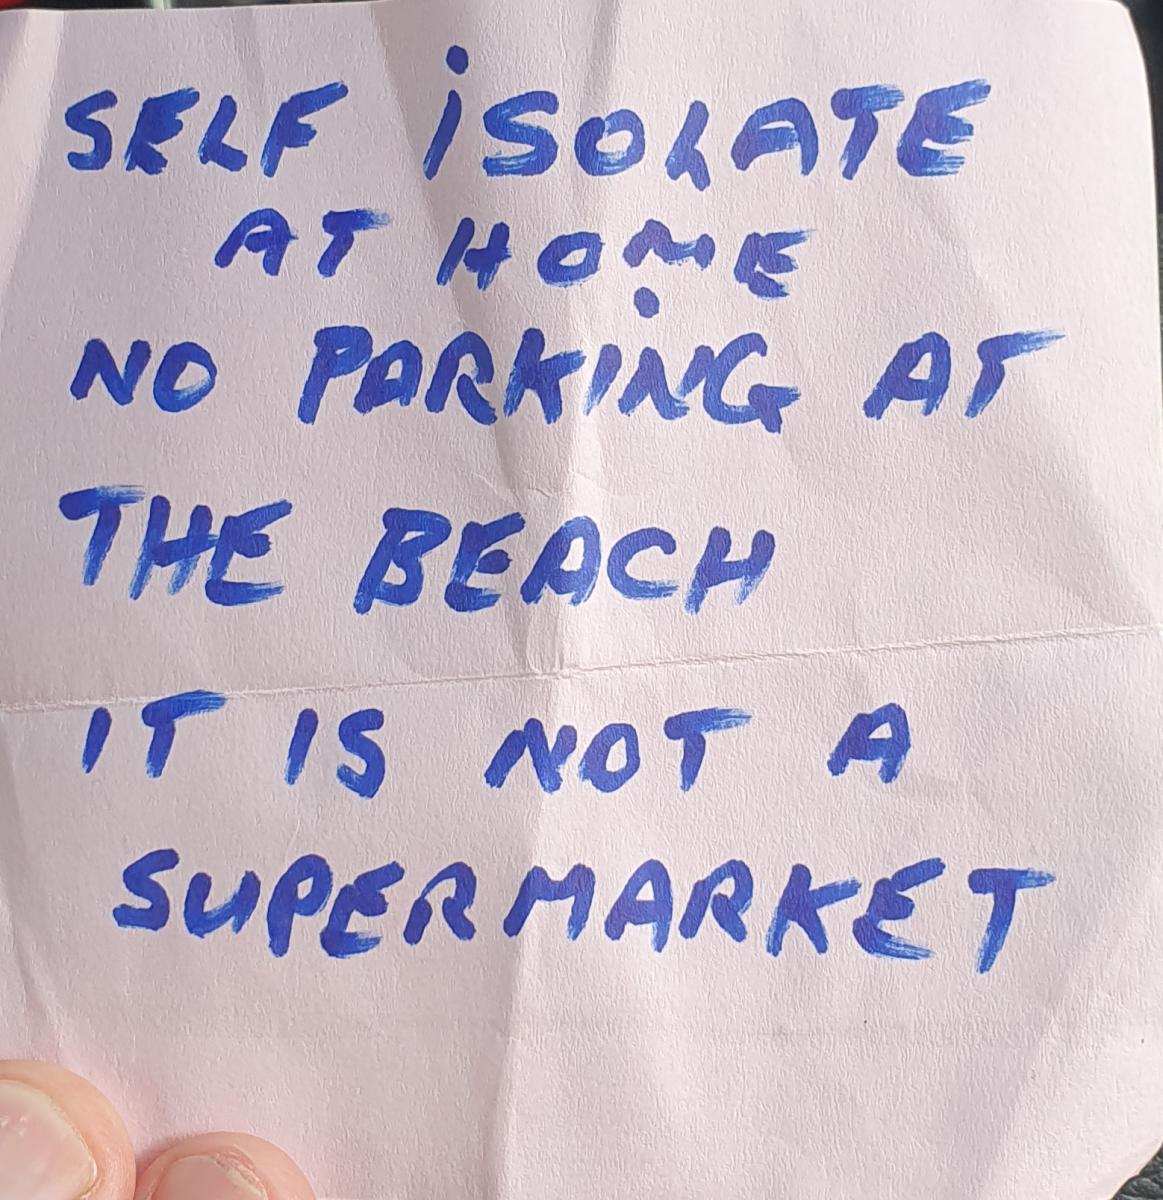 SELF iSOLATE
AT HOME
NO PARKiNG AT
THE BEACH
IT IS NOT A
SUPERMARKET